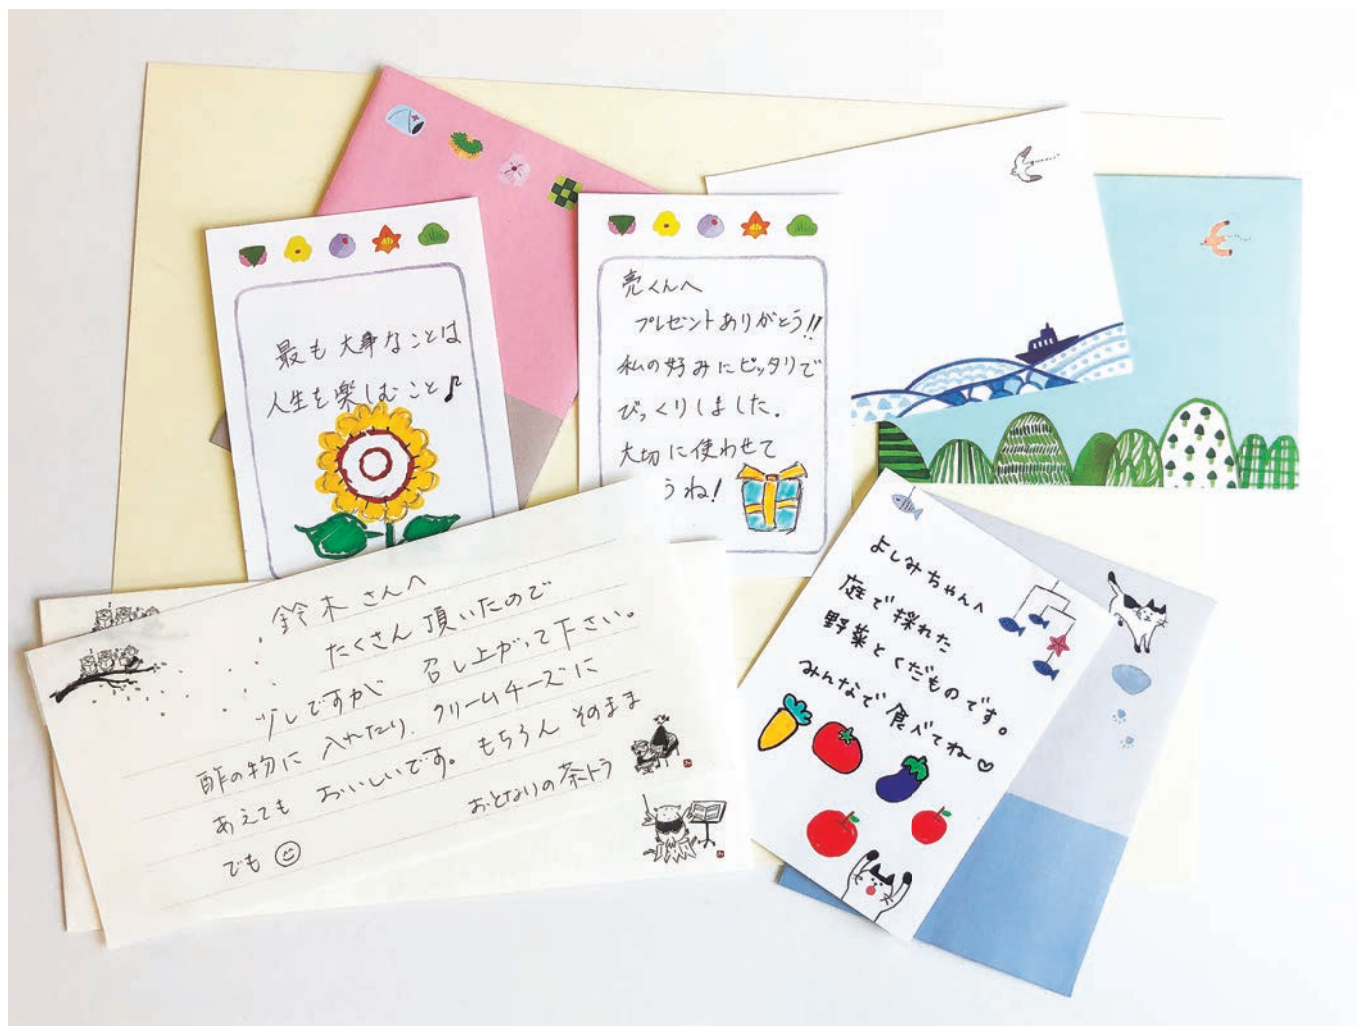 最も大事なことは
人生を楽しむこと♪
亮くんへ
プレゼントありがとう!!
私の好みにピッタリで
びっくりしました.
大切に使わせて
うね!
鈴木さんへ
たくさん頂いたので
少しですが 召し上がって下さい。
酢の物に入れたり, クリームチーズに
あえても おいしいです。もちろん そのまま
でも
おとなりの茶トラ
よしみちゃんへ
庭で採れた
野菜とくだものです。
みんなで食べてね♡